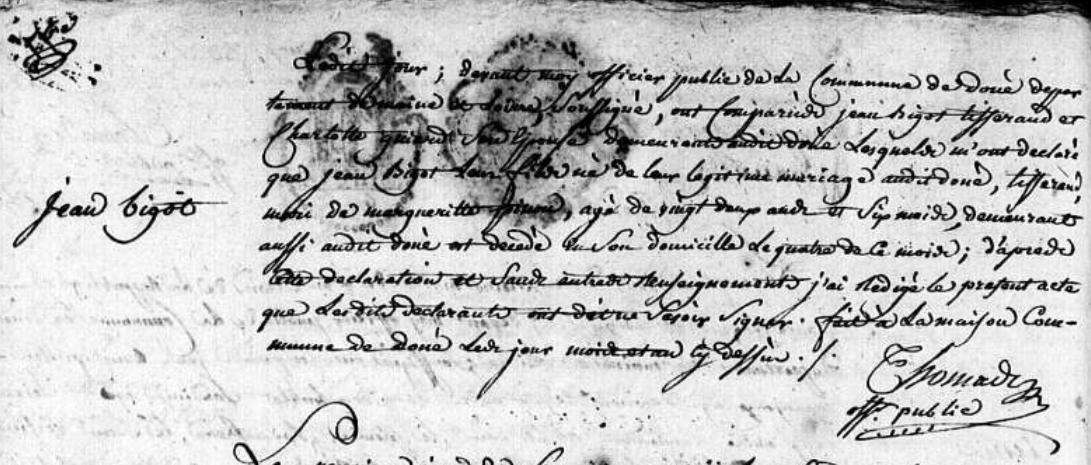 Ledit jour ; devant moy officier public de la Commune de doué depar
tement de maine et Loire, Soussigné, ont Comparüds jean bigot tisserand et
jean bigot
Charlotte Son Epouse demeurants audit doué Lesquels m'ont declaré
que jean Bigot Leur fils né de leur legitime mariage audit doué, tisserand,
mari de margueritte pinon, agé de vingt deux ands et Six moids, demeurant
aussi audit doué est decédé en Son domicille Le quatre de Ce moids ; d'apreds
Cette declaration et Sands autreds Renseignements j'ai Redigé le present acte
que Lesdits declarants ont dit ne Sçavoir Signer. fait a La maison Com-
mune de doué Leds jour moids et an Cy dessus ./.
Thomads
off. public